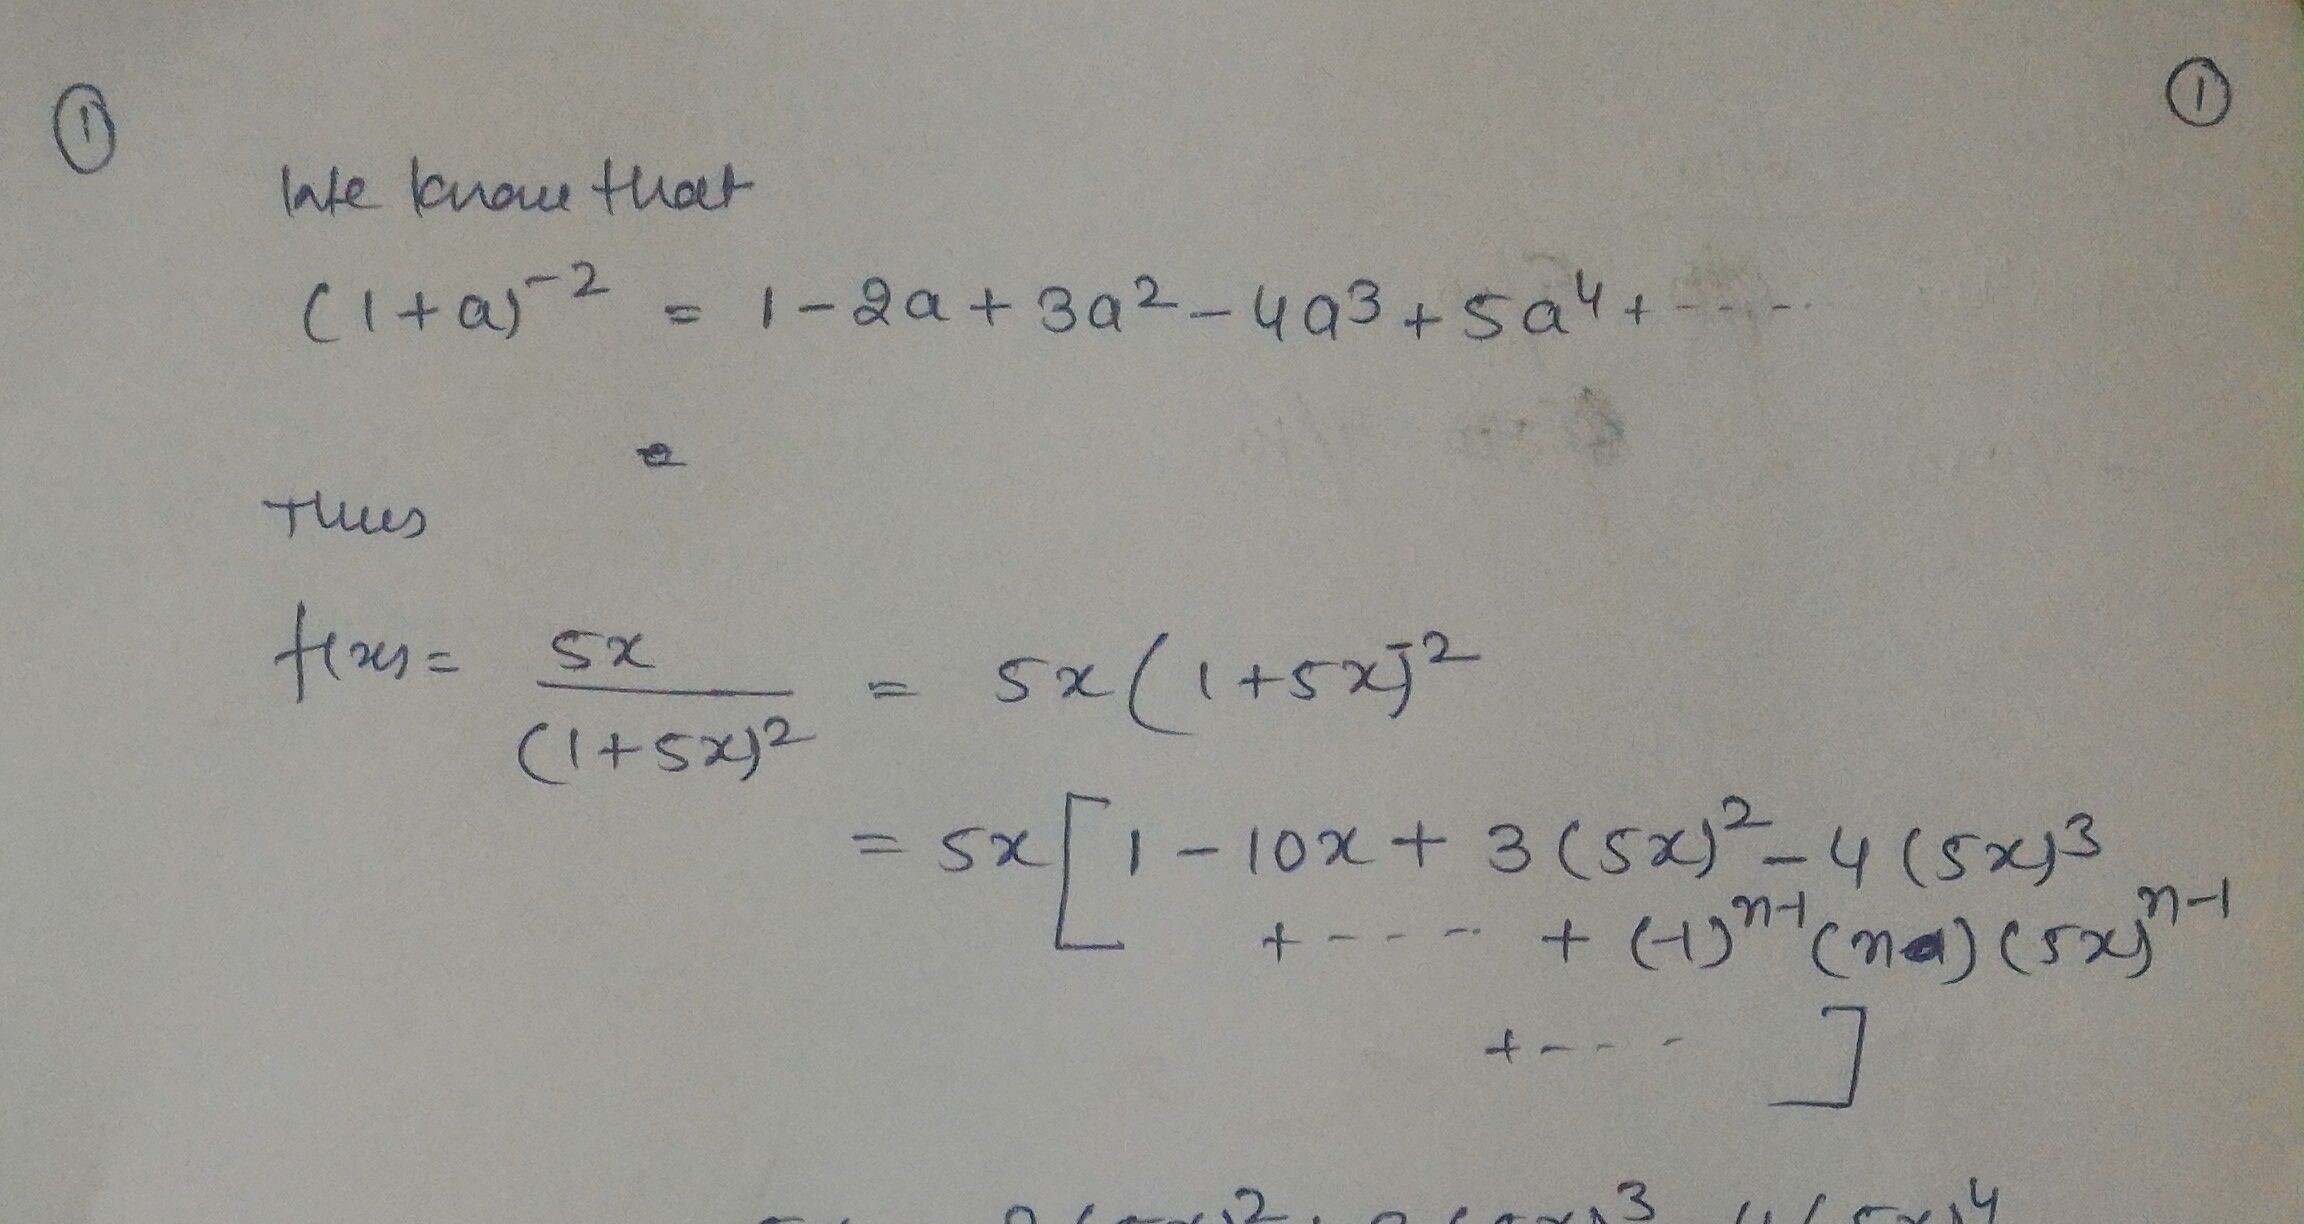 ① ①
We know that
(1+a)⁻² = 1-2a+3a²-4a³+5a⁴+-----
Thus
f(x)= 5x/(1+5x)² = 5x(1+5x)⁻²
= 5x[1-10x+3(5x)²-4(5x)³
+---- + (-1)ⁿ⁻¹(n)(5x)ⁿ⁻¹
+--- ]